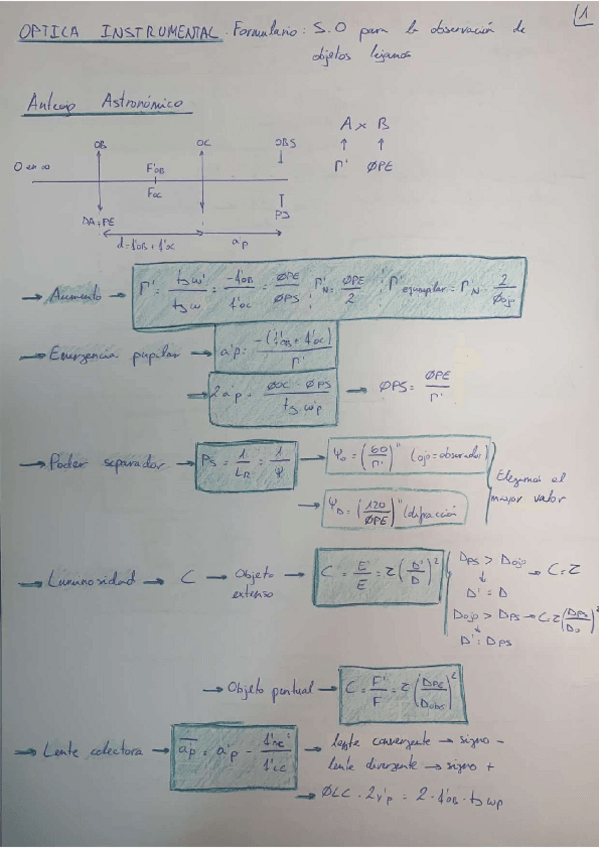 1
OPTICA INSTRUMENTAL. Formulario: S.O para la observación de
objetos lejanos
Anteojo Astronómico
A x B
↑ ↑
Γ' ØPE
O en ∞
OB OC OBS
F'OB
FOC
DA=PE PS
d=f'OB+f'OC a'p
→ Aumento → Γ' = tg ω'/tg ω = -f'OB/f'OC = ØPE/ØPS ; Γ'N = ØPE/2 ; Γ' = Γ'N · 2/Øojo
→ Emergencia pupilar → a'p = -(f'OB + f'OC)/Γ'
→ 2a'p = ØOC - ØPS / tg ω'p → ØPS = ØPE/Γ'
→ Poder separador → PS = 1/LR = 1/Ψ → Ψo = (60/Γ')" (ojo=observador)
→ ΨD = (120/ØPE)" (difracción
Elegimos el
mayor valor
→ Luminosidad → C → Objeto extenso → C = E'/E = τ(D'/D)²
DPS > Dojo → C=τ
↓
D' = D
Dojo > DPS → C=τ(DPS/Do)²
↓
D' = DPS
→ Objeto puntual → C = F'/F = τ(DPE/Dobs)²
→ Lente colectora → ap = a'p - f'oc²/f'LC → lente convergente → signo -
lente divergente → signo +
→ ØLC = 2y'p = 2 · f'OB · tg ωp